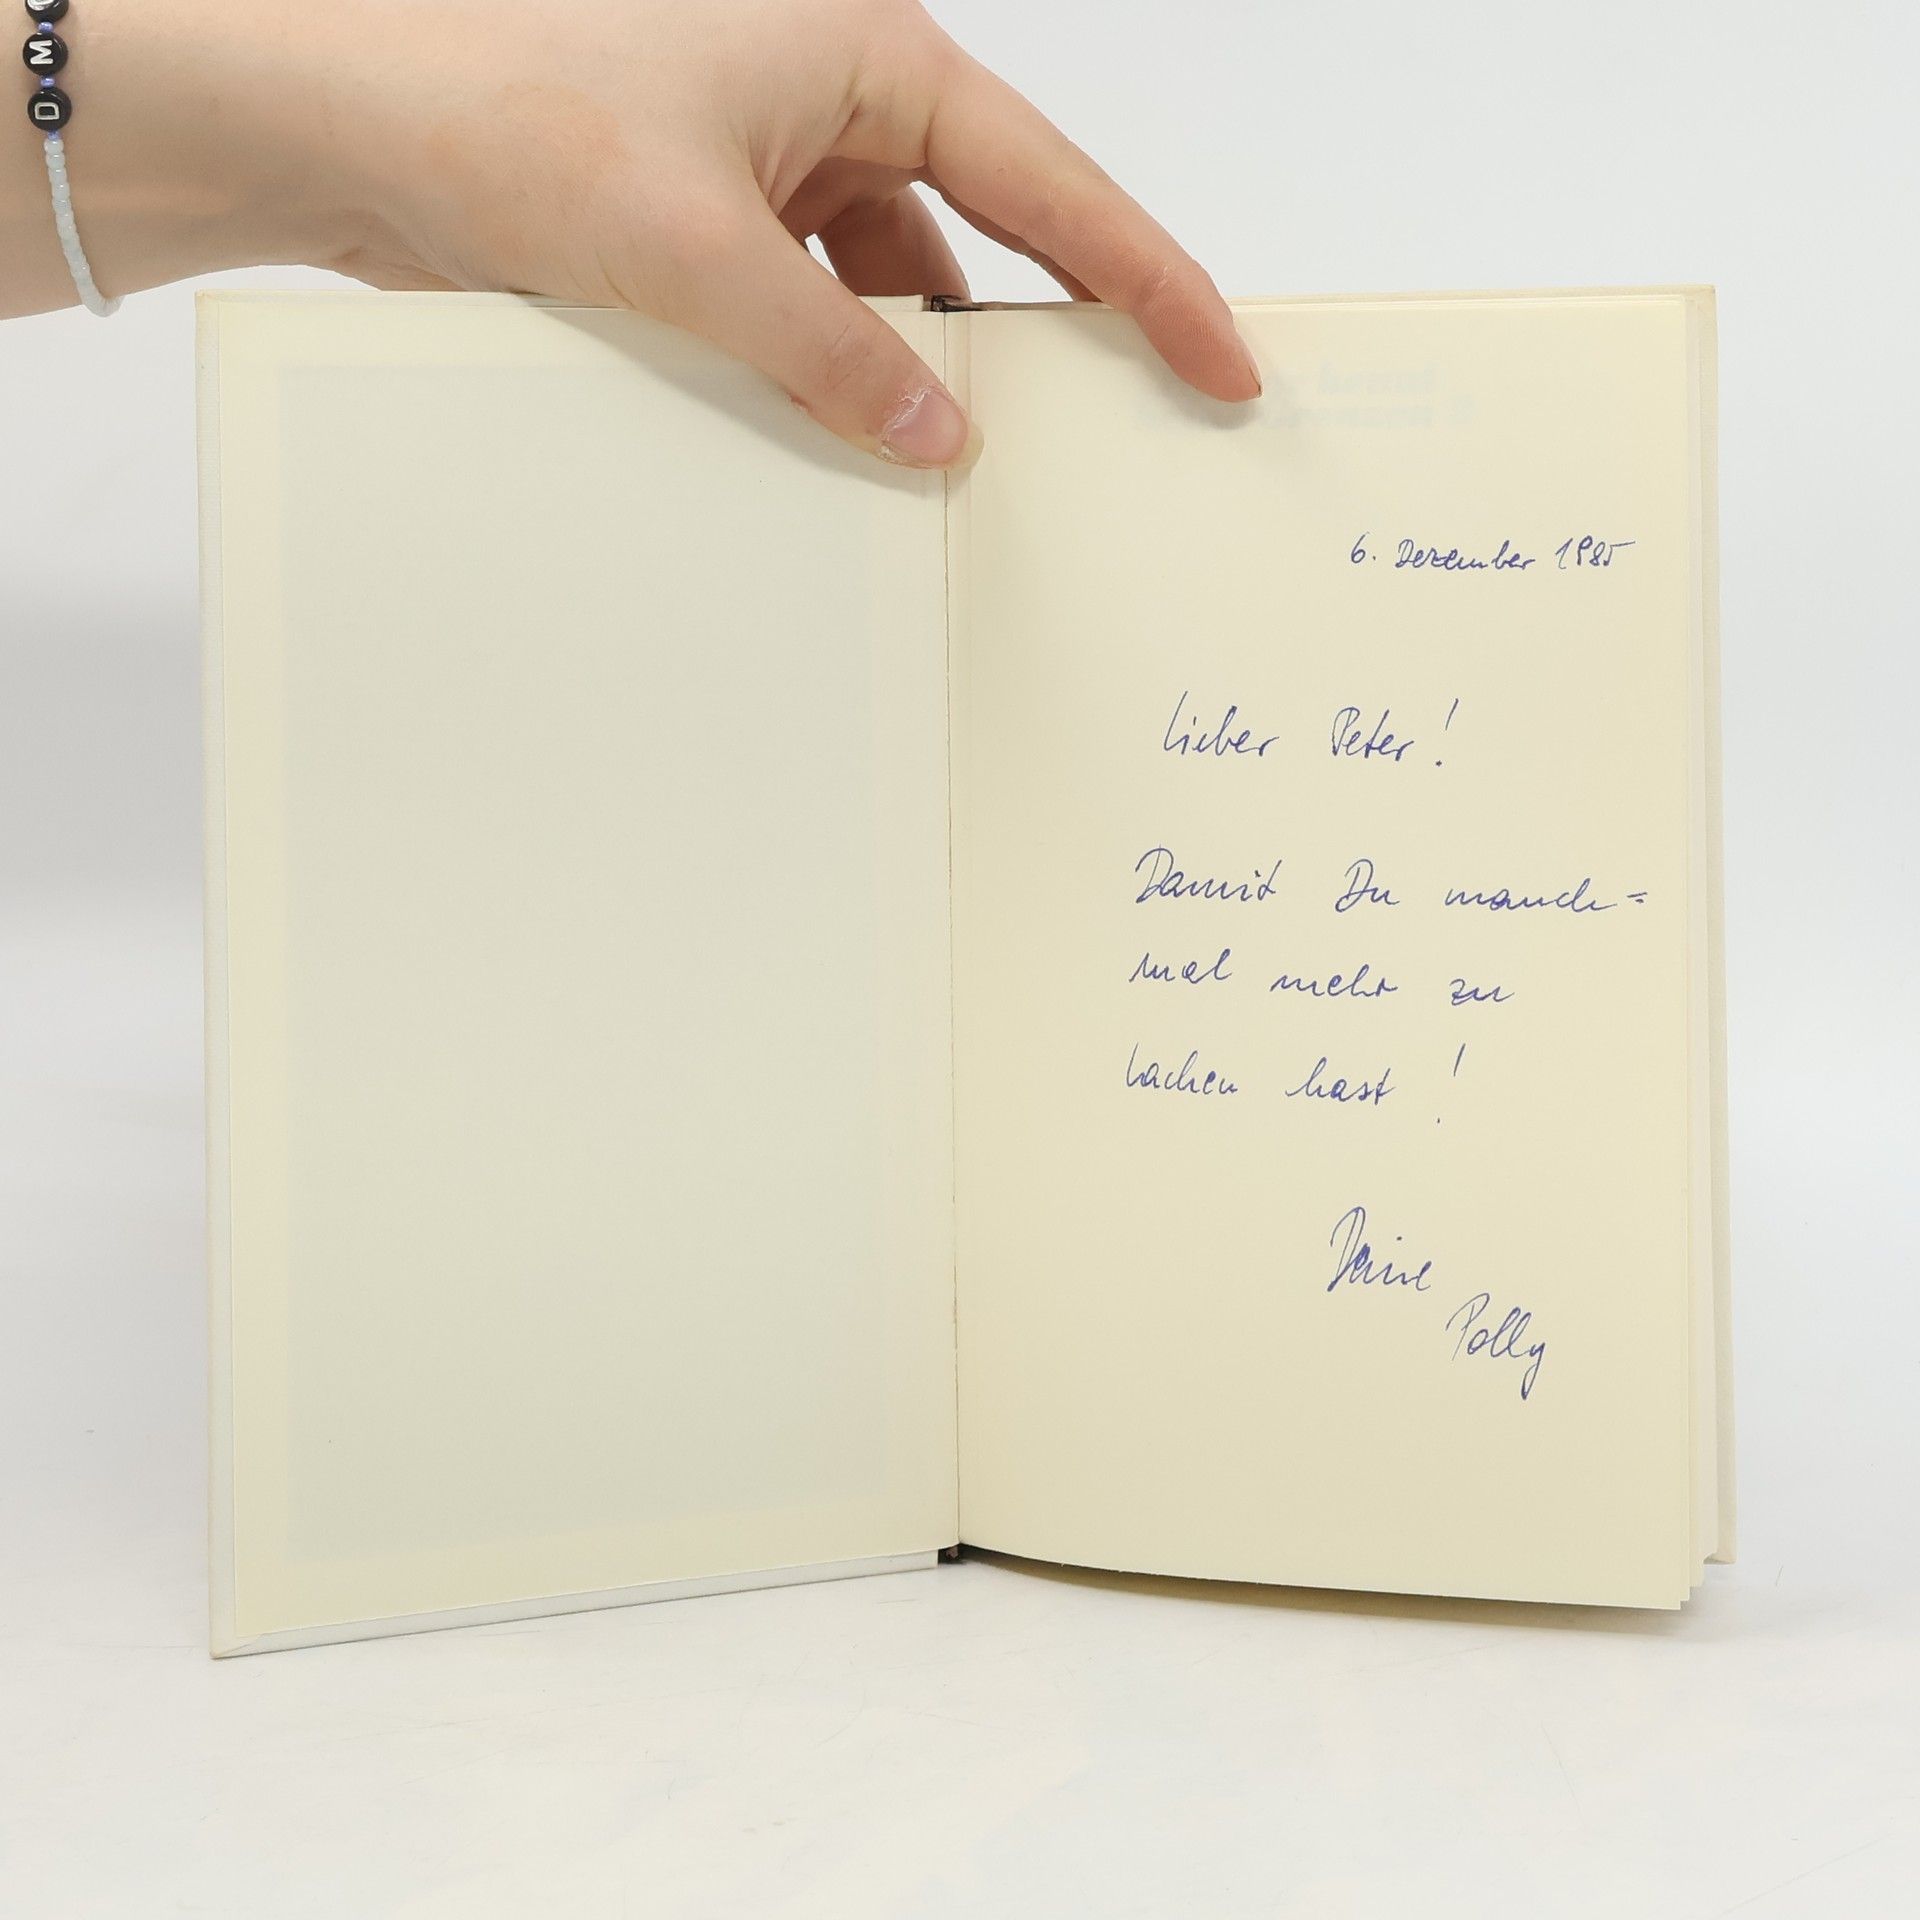 M
D
6. Dezember 1985
Lieber Peter!
Damit Du manch=
mal mehr zu
Lachen hast!
Deine
Polly